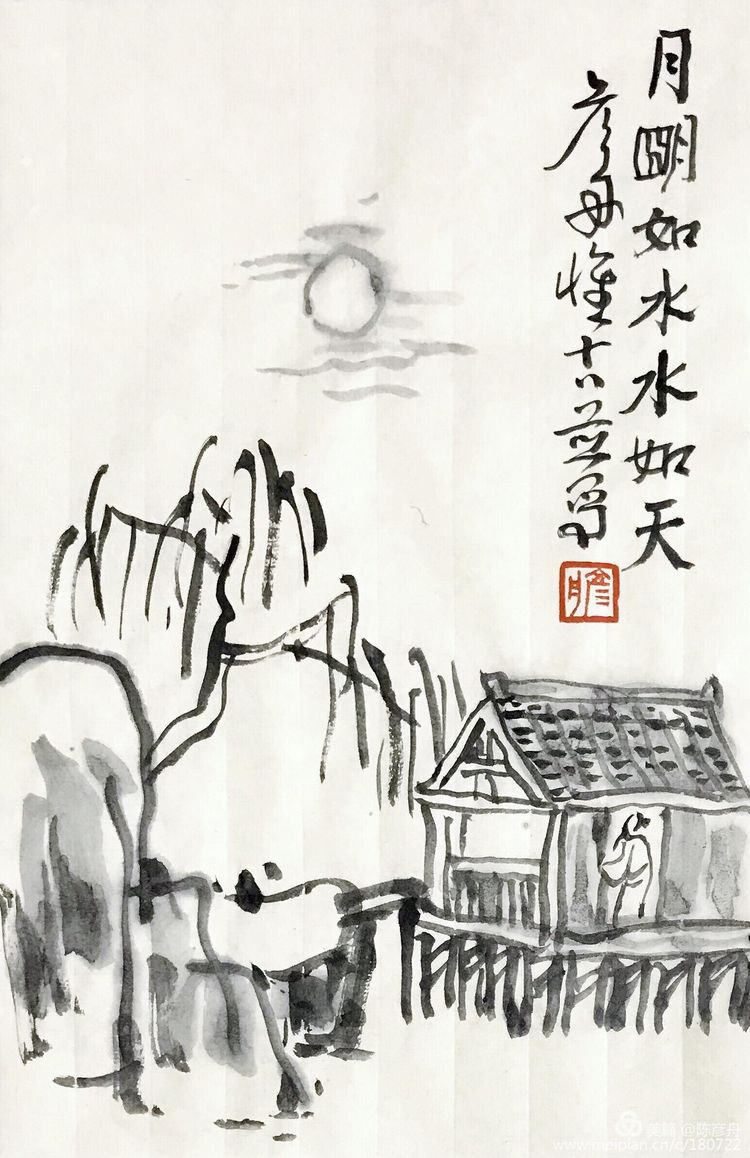 月明如水水如天
彦舟
美篇 @陈彦舟
www.meipian.cn/c/180722